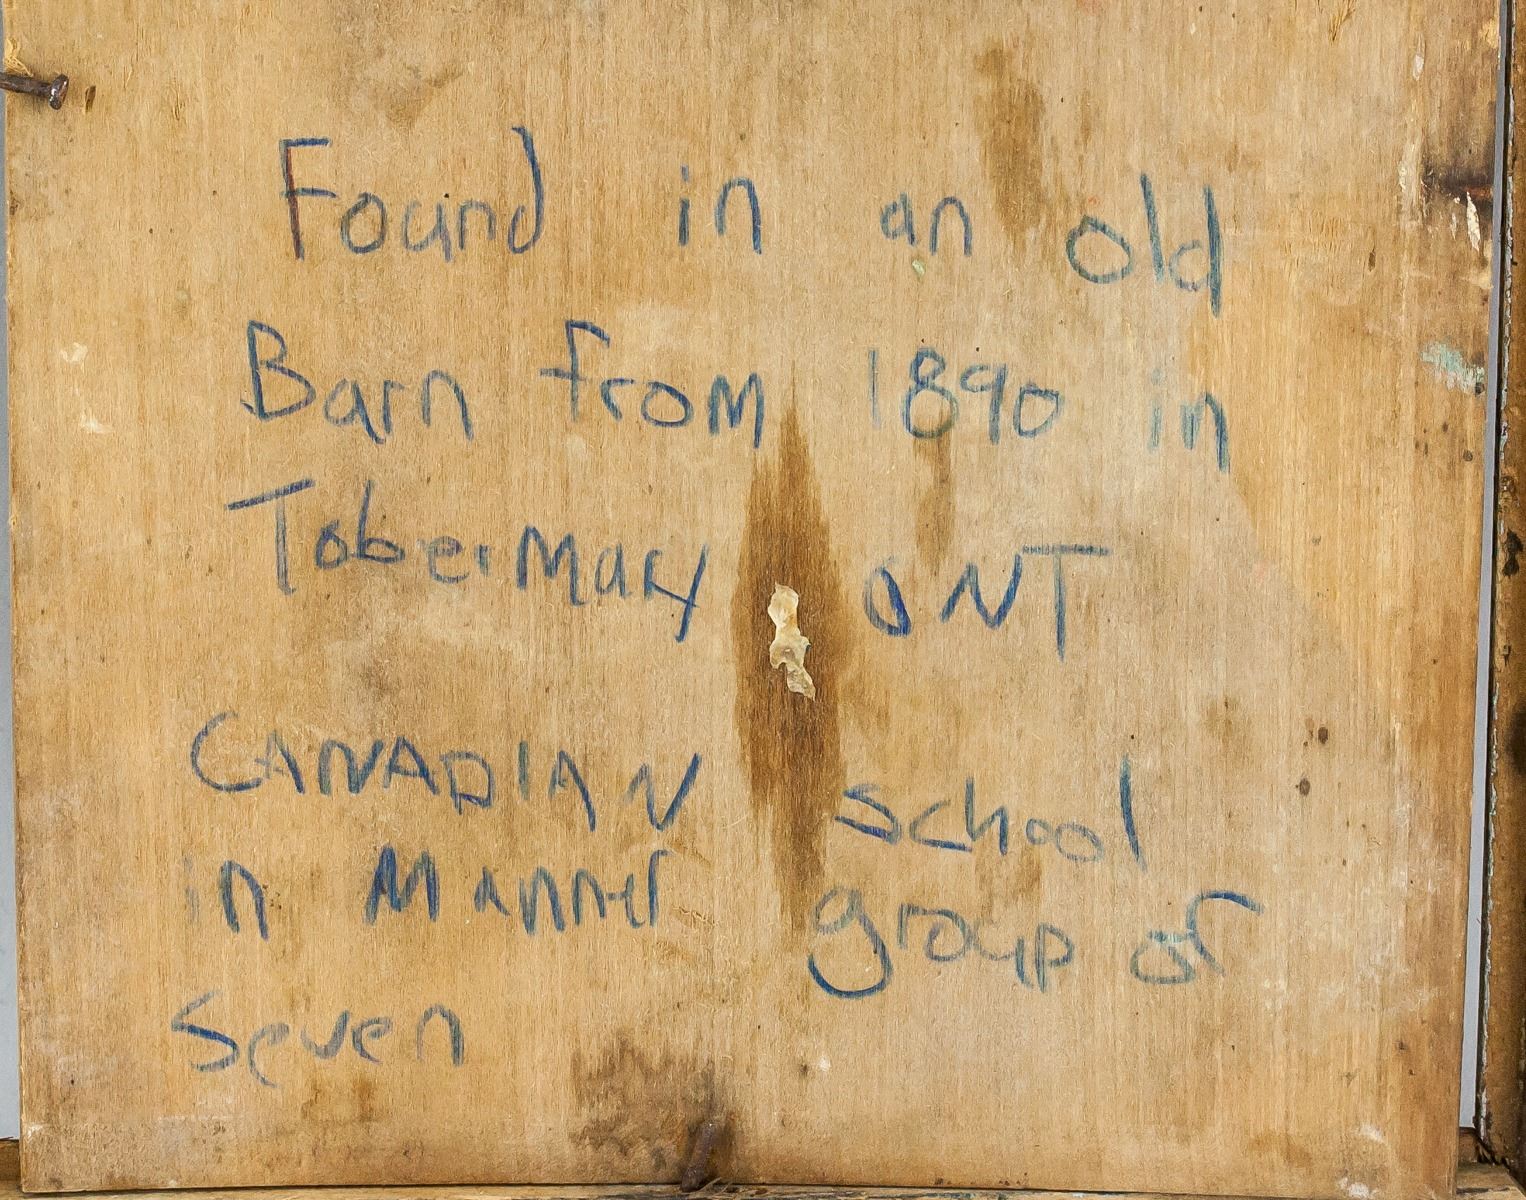 Found in an old
Barn from 1890 in
Tobermary ONT
CANADIAN school
in Manner group of
Seven